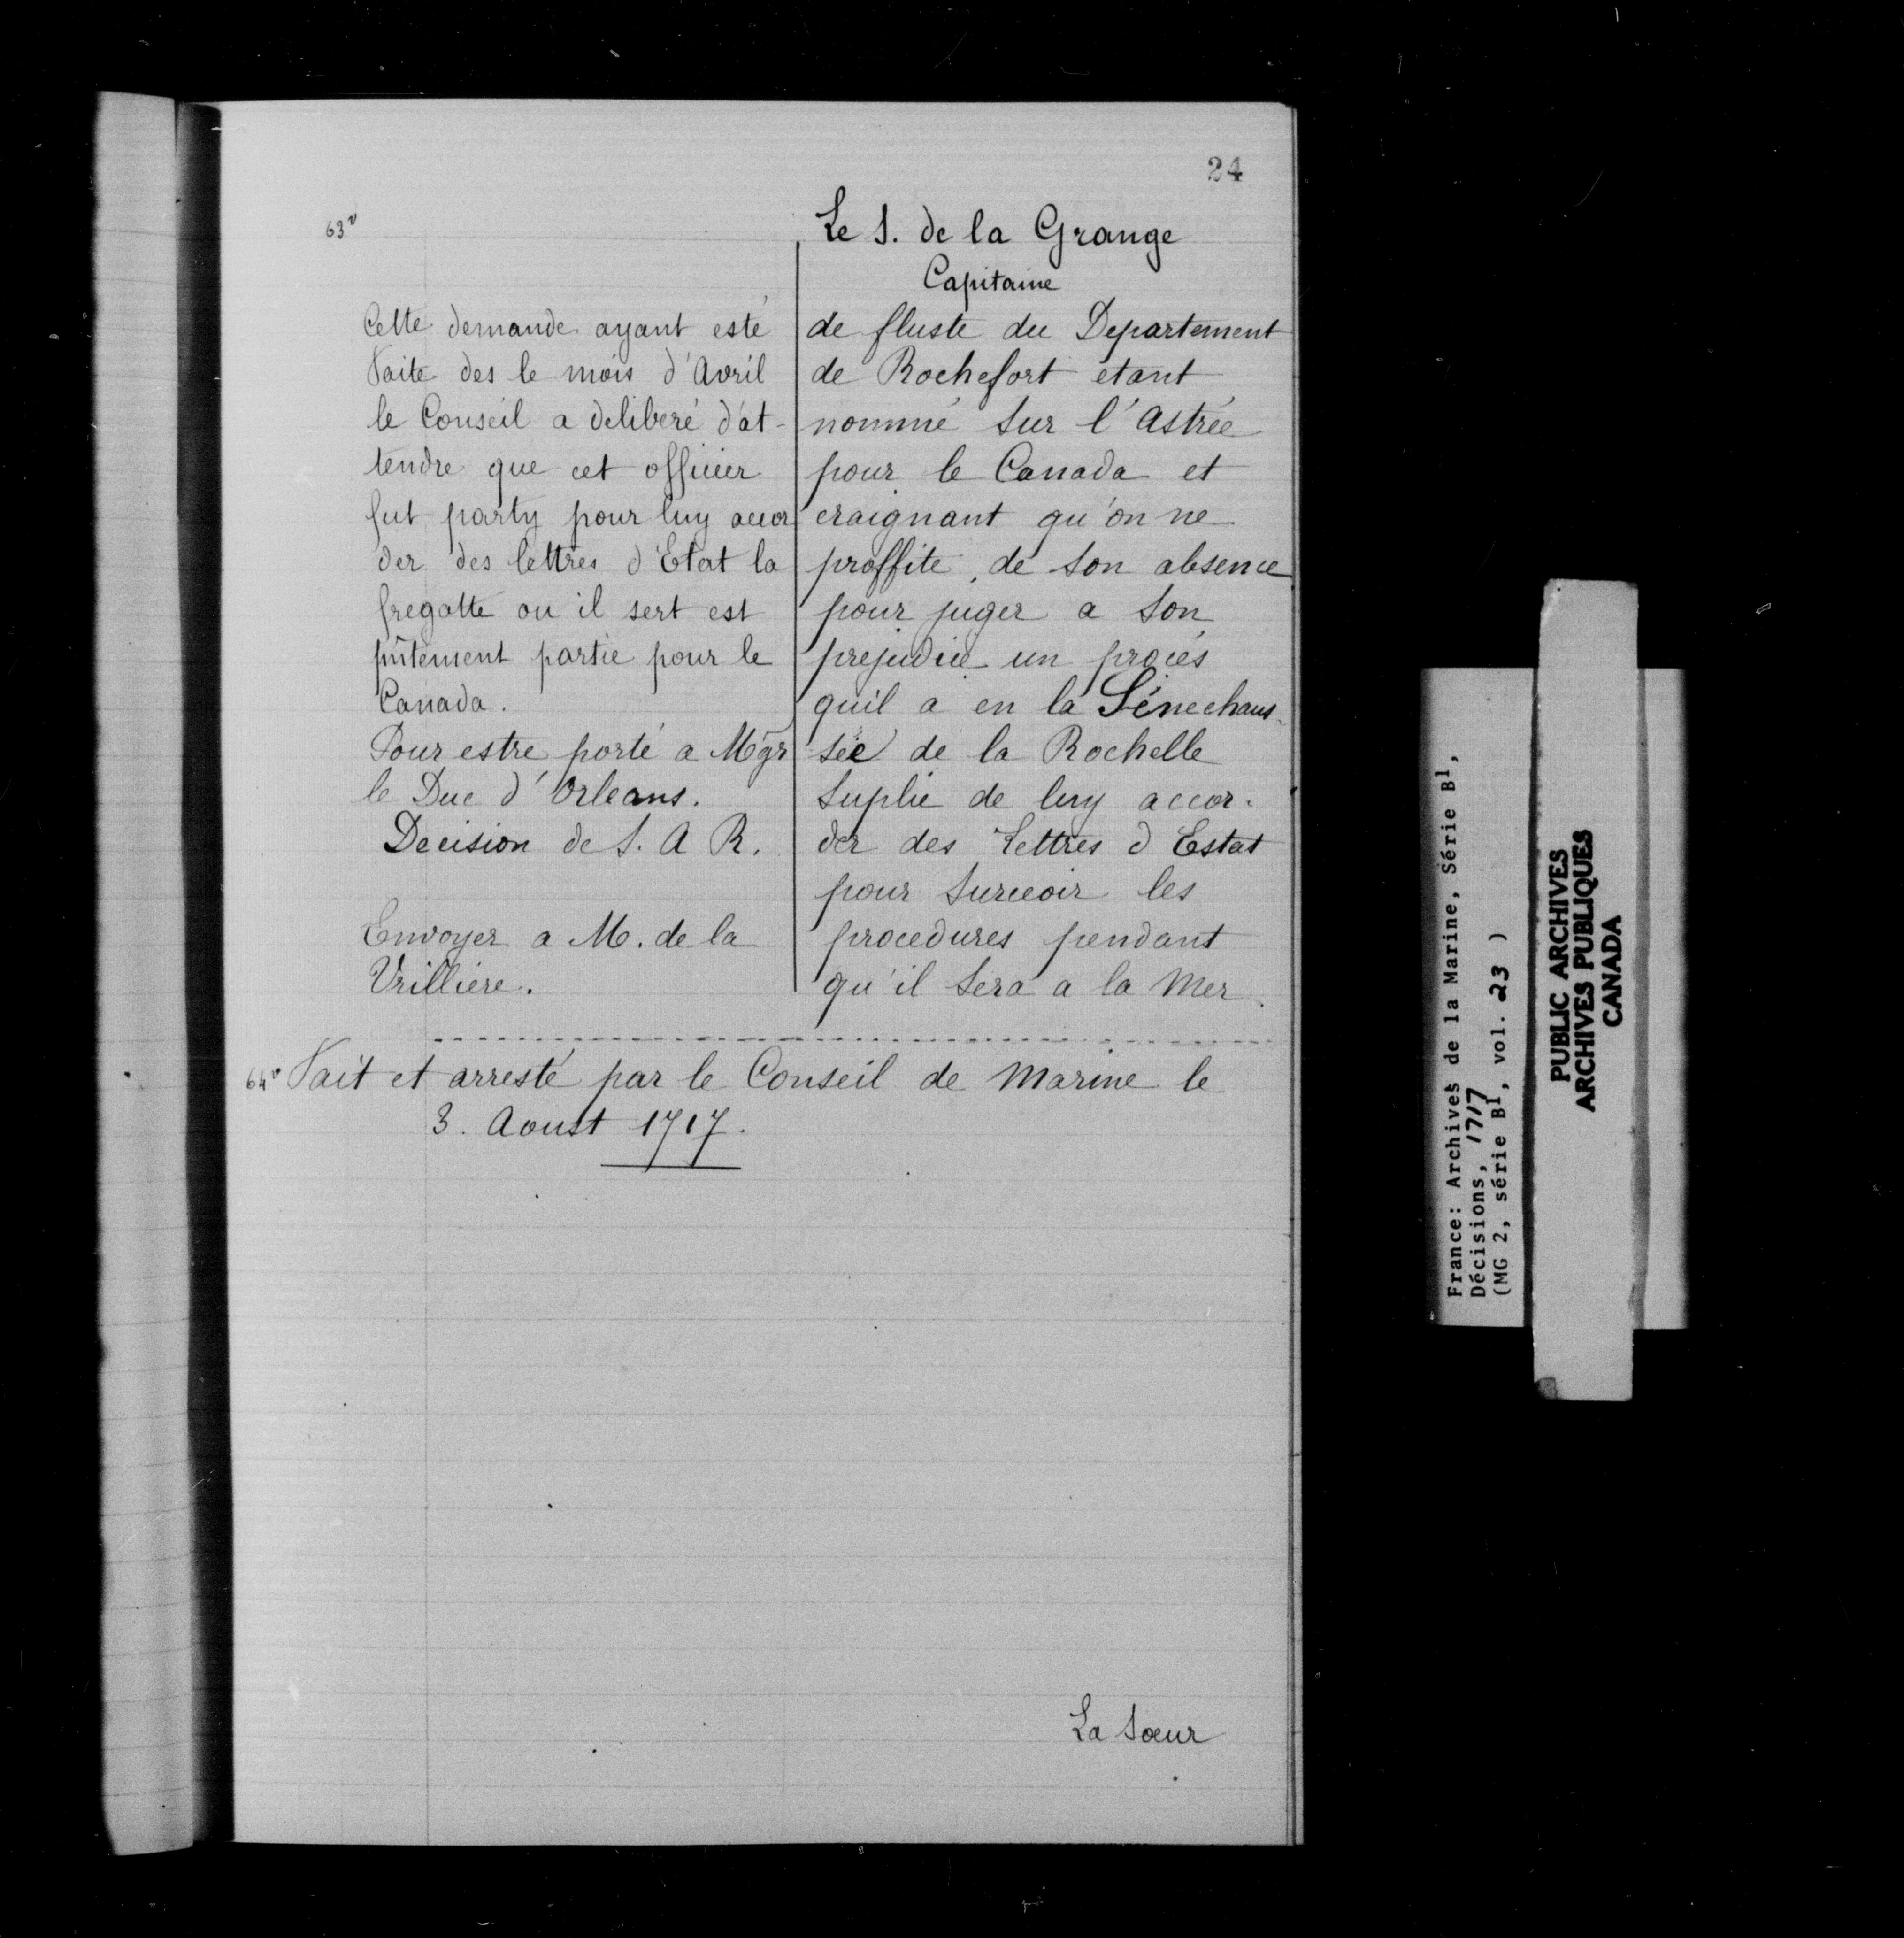 24
63v
Le S. de la Grange
Capitaine
de fluste du Departement
de Rochefort etant
nommé sur l'Astrée
pour le Canada et
craignant qu'on ne
proffite de son absence
pour juger a son
prejudice un procés
quil a en la Sénechaus-
sée de la Rochelle
suplie de luy accor-
der des Lettres d Estat
pour surceoir les
procedures pendant
qu'il sera a la Mer.
Cette demande ayant esté
faite des le mois d'Avril
le Conseil a deliberé d'at-
tendre que cet officier
fut party pour luy accor
der des lettres d'Etat la
fregatte ou il sert est
pñtement partie pour le
Canada.
Pour estre porté a Mgr
le Duc d'Orleans.
Decision de S. A R.
Envoyer a M. de la
Vrilliere.
64v Fait et arresté par le Conseil de Marine le
3. Aoust 1717.
La Sœur
France: Archives de la Marine, Série B1,
Décisions, 1717
(MG 2, série B1, vol. 23 )
PUBLIC ARCHIVES
ARCHIVES PUBLIQUES
CANADA